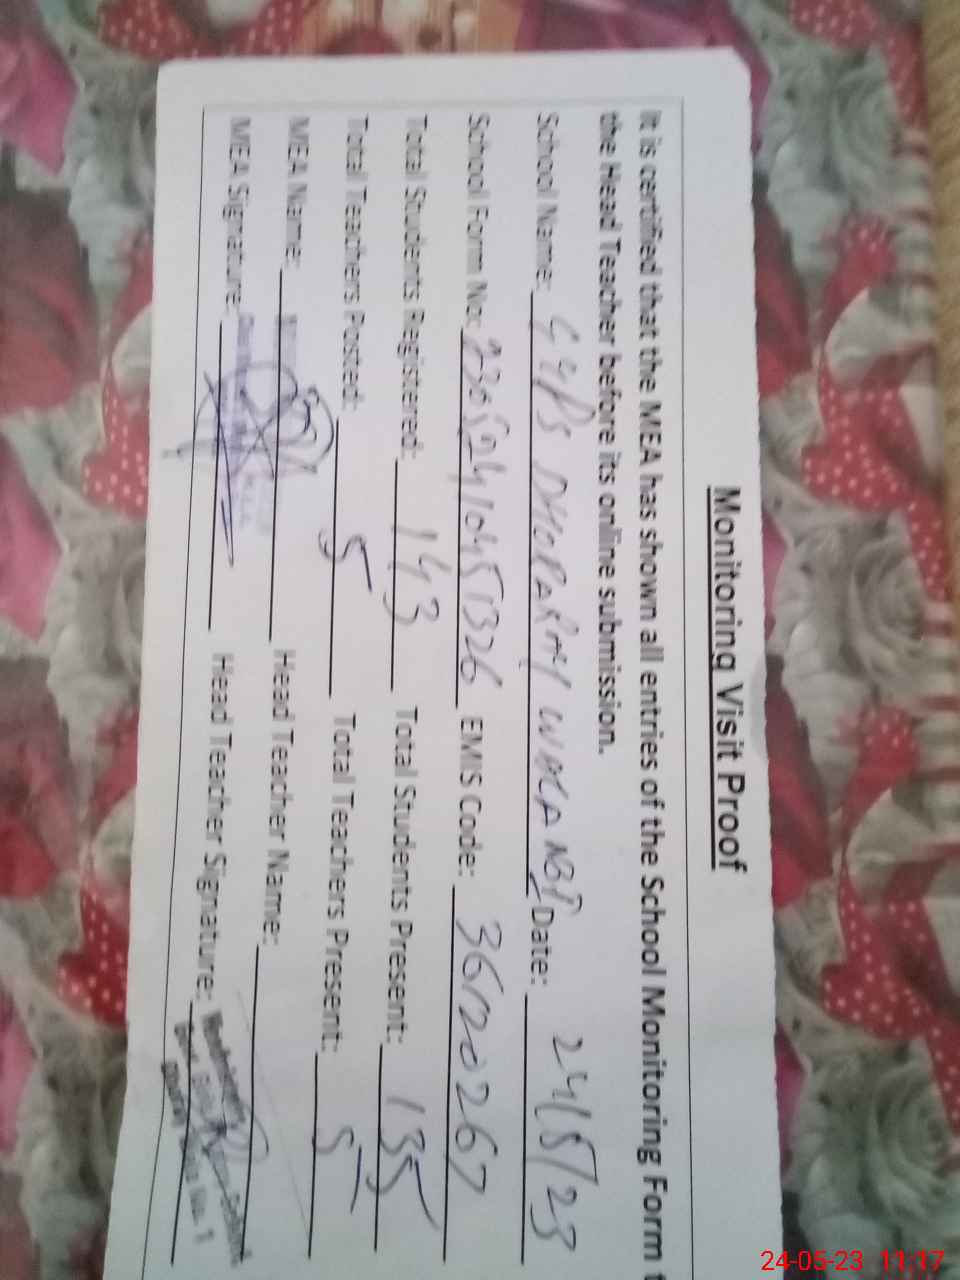 Monitoring Visit Proof
It is certified that the MEA has shown all entries of the School Monitoring Form t
the Head Teacher before its online submission.
School Name: Date: 24/5/23
School Form No: EMIS Code: 36120267
Total Students Registered: 143 Total Students Present: 135
Total Teachers Posted: 5 Total Teachers Present: 5
MEA Name: Head Teacher Name:
MEA Signature: Head Teacher Signature:
24-05-23 11:17